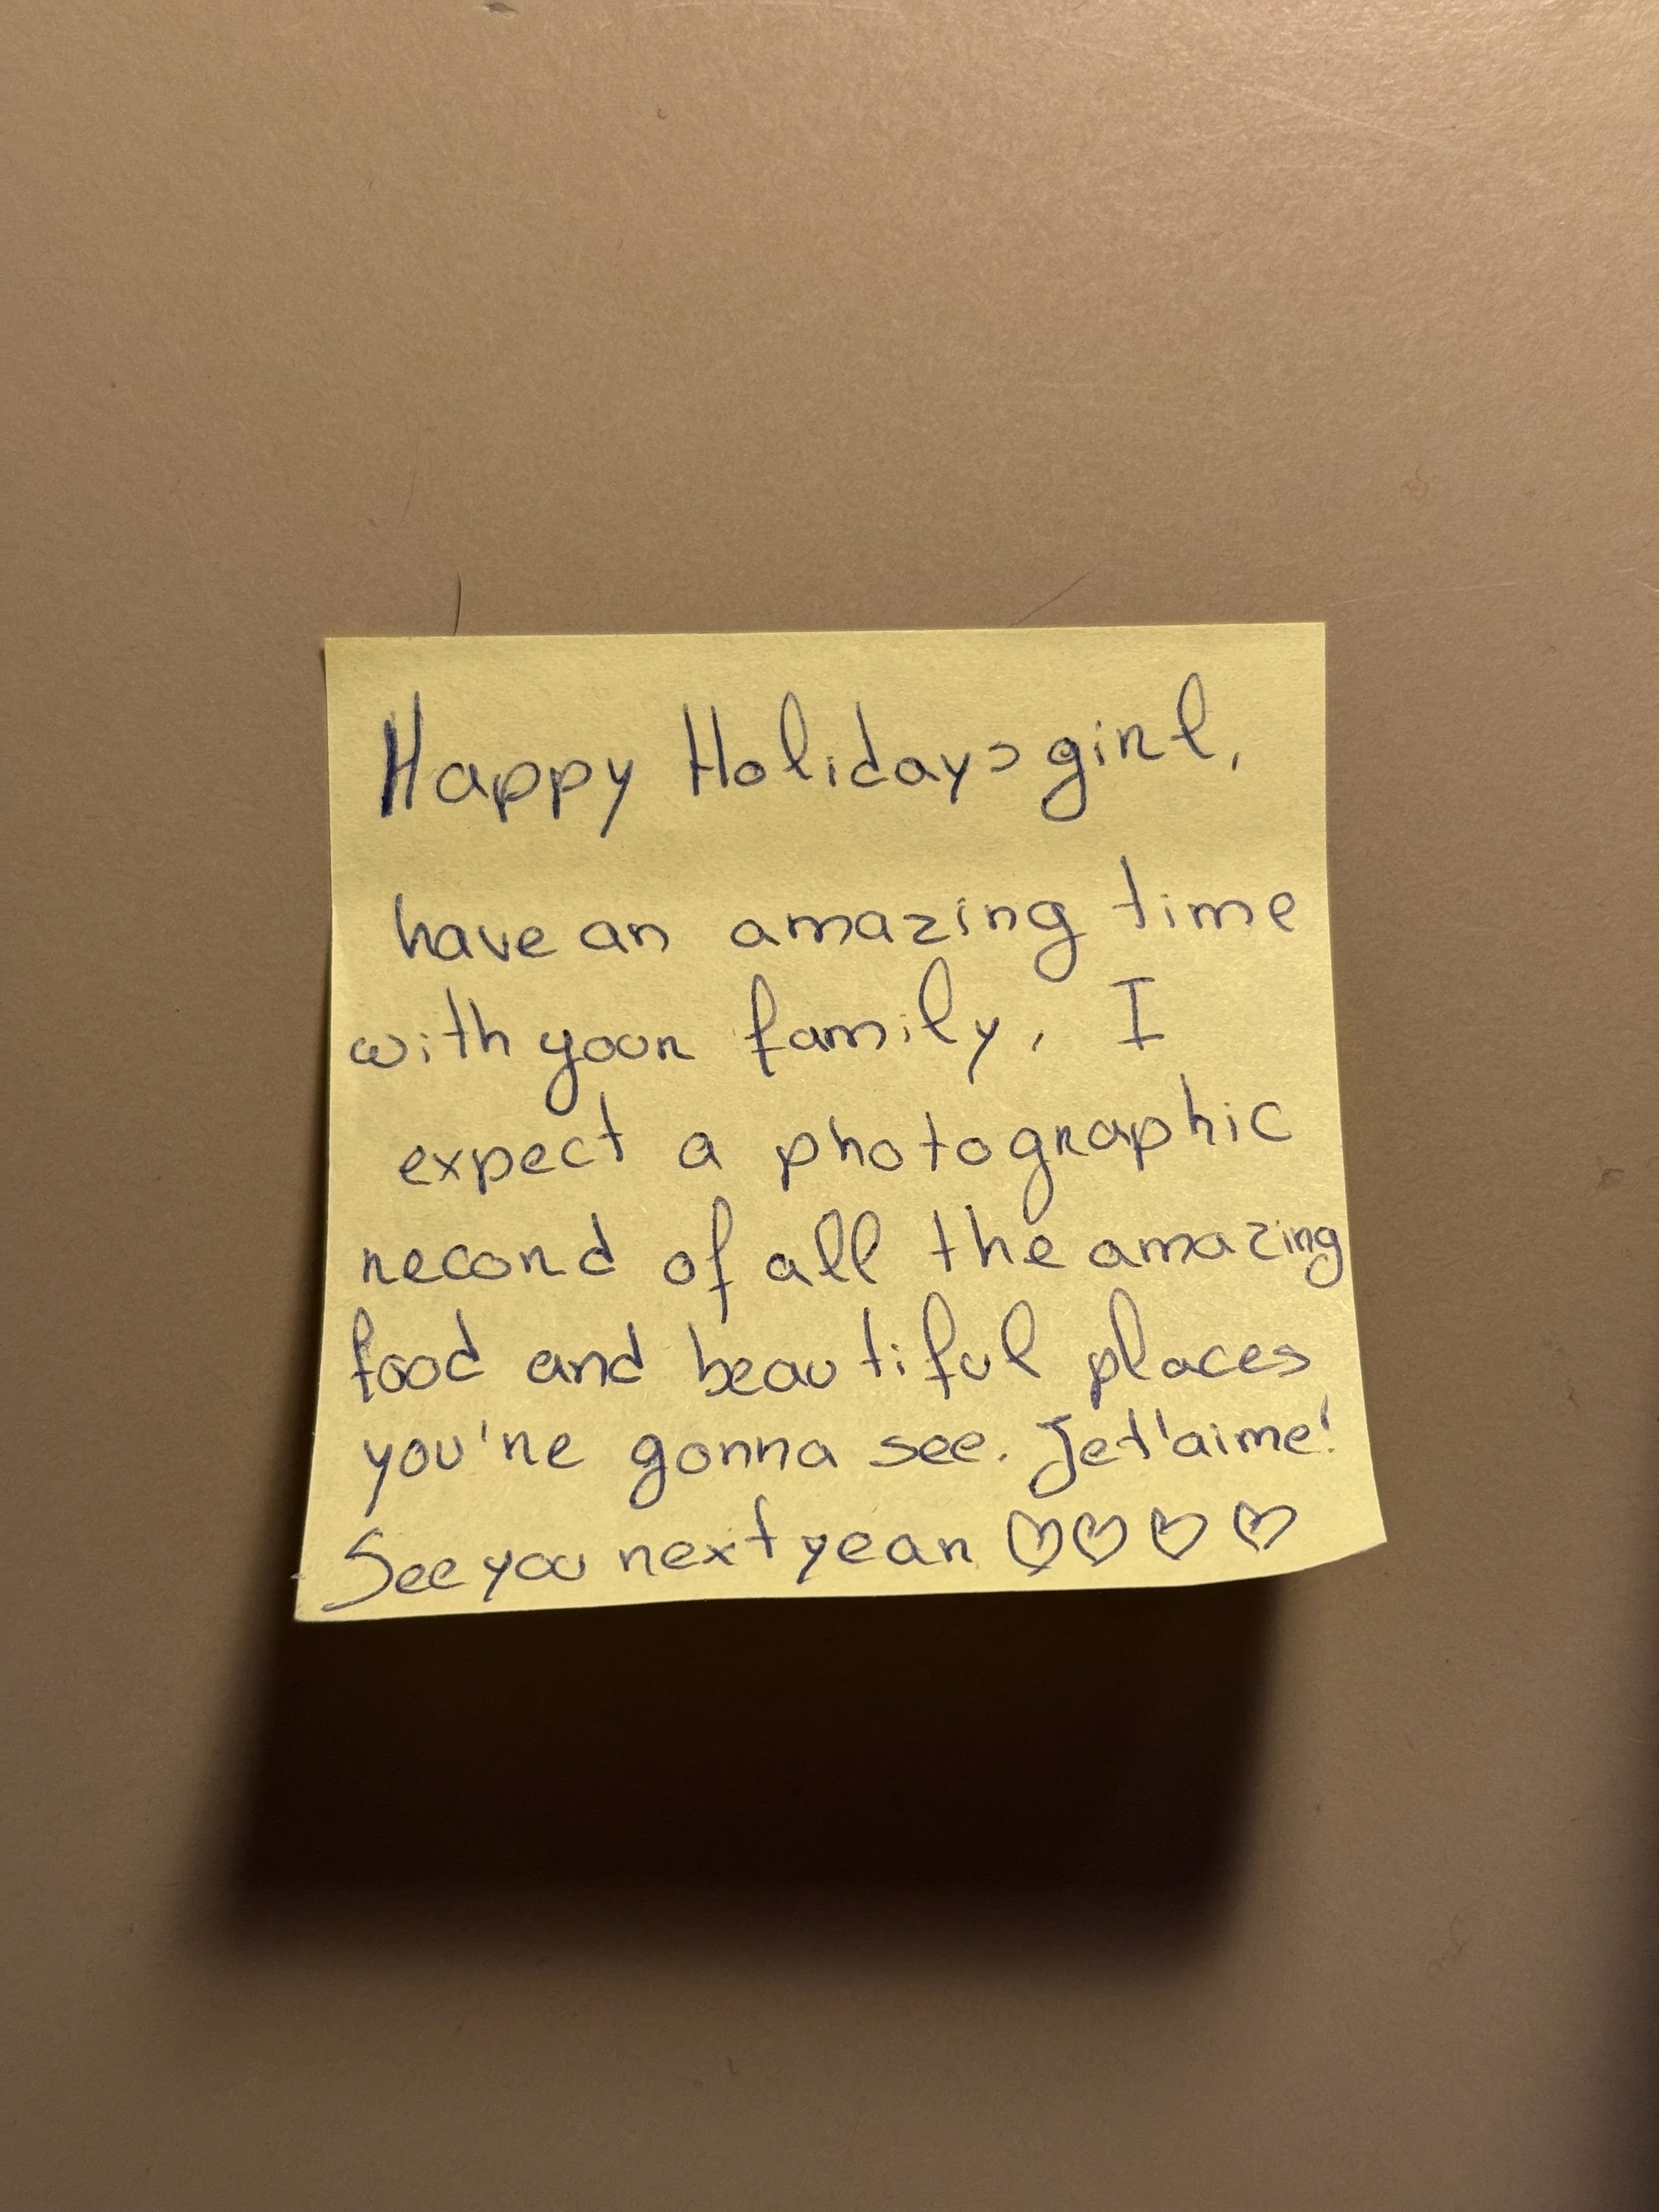 Happy Holidays girl,
have an amazing time
with your family, I
expect a photographic
record of all the amazing
food and beautiful places
you're gonna see. Je t'aime!
See you next year ♡♡♡♡